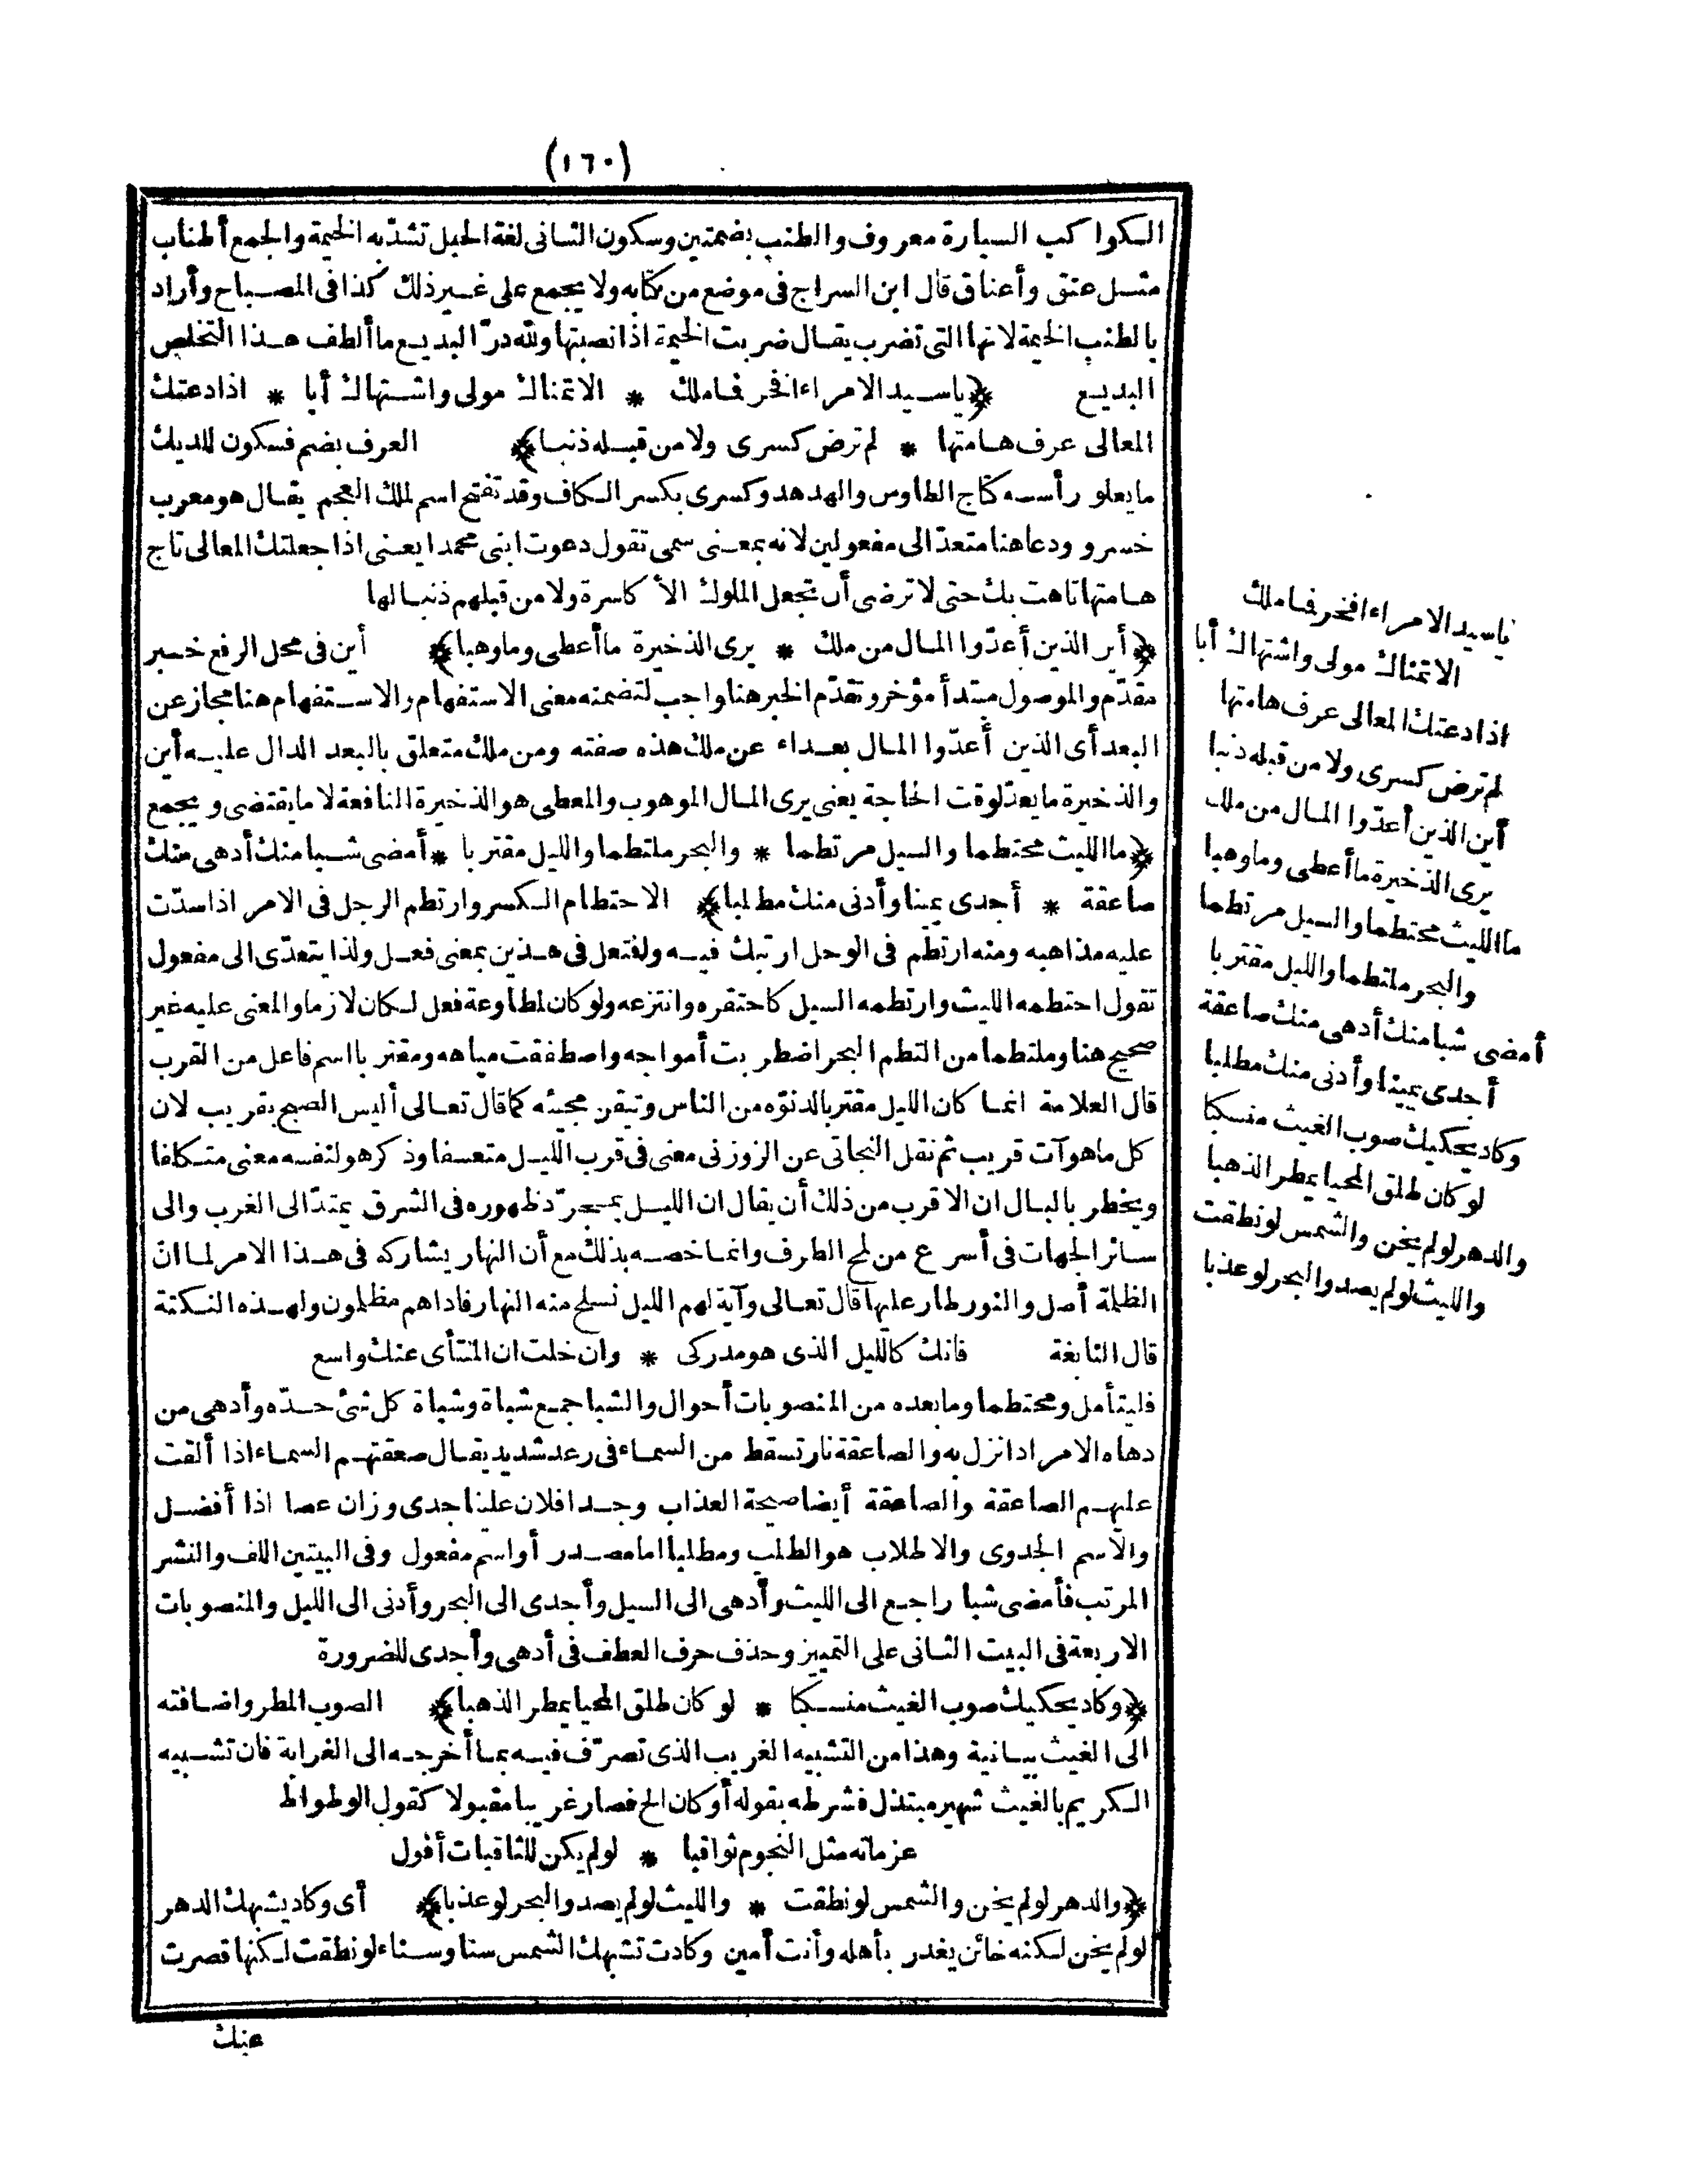 (١٦٠)
الكواكب السيارة معروف والطنب بضمتين وسكون الثانى لغة الحبل تشدّ به الخيمة والجمع أطناب
مثل عنق وأعناق قال ابن السراج فى موضع من كتابه ولا يجمع على غير ذلك كذا فى المصباح وأراد
بالطنب الخيمة لانها التى تضرب يقال ضربت الخيمة اذا نصبتها ولله درّ البديع ما ألطف هذا التخلص
البديع ﴿ياسيد الامراء افخر فما ملك * الا تمناك مولى واشتهاك أبا * اذا دعتك
المعالى عرف هامتها * لم ترض كسرى ولا من قبله ذنبا﴾ العرف بضم فسكون للديك
ما يعلو رأسه كتاج الطاوس والهدهد وكسرى بكسر الكاف وقد تفتح اسم لملك العجم يقال هو معرب
خسرو ودعا هنا متعدّ الى مفعولين لانه بمعنى سمى تقول دعوت ابنى محمدا يعنى اذا جعلتك المعالى تاج
هامتها تاهت بك حتى لا ترضى أن تجعل الملوك الأكاسرة ولا من قبلهم ذنبا لها
﴿أين الذين أعدّوا المال من ملك * يرى الذخيرة ما أعطى وما وهبا﴾ أين فى محل الرفع خبر
مقدّم والموصول مبتدأ مؤخر وتقدّم الخبر هنا واجب لتضمنه معنى الاستفهام والاستفهام هنا مجاز عن
البعد أى الذين أعدّوا المال بعداء عن ملك هذه صفته ومن ملك متعلق بالبعد الدال عليه أين
والذخيرة ما يعدّ لوقت الحاجة يعنى يرى المال الموهوب والمعطى هو الذخيرة النافعة لا ما يقتضى ويجمع
﴿ما الليث محتطما والسيل مرتطما * والبحر ملتطما والليل مقتربا * أمضى شبا منك أدهى منك
صاعقة * أجدى يمينا وأدنى منك مطلبا﴾ الاحتطام الكسر وارتطم الرجل فى الامر اذا سدّت
عليه مذاهبه ومنه ارتطم فى الوحل ارتبك فيه وافتعل فى هذين بمعنى فعل ولذا يتعدّى الى مفعول
تقول احتطمه الليث وارتطمه السيل كاحتقره وانتزعه ولو كان لمطاوعة فعل لكان لازما والمعنى عليه غير
صحيح هنا وملتطما من التطم البحر اضطربت أمواجه واصطفقت مياهه ومقتربا اسم فاعل من القرب
قال العلامة انما كان الليل مقتربا لدنوّه من الناس وتيقن مجيئه كما قال تعالى أليس الصبح بقريب لان
كل ما هو آت قريب ثم نقل النجاتى عن الزوزنى معنى فى قرب الليل متعسفا وذكر هو لنفسه معنى متكافا
ويخطر بالبال ان الاقرب من ذلك أن يقال ان الليل بمجرّد ظهوره فى الشرق يمتدّ الى الغرب والى
سائر الجهات فى أسرع من لمح الطرف وانما خصه بذلك مع أن النهار يشاركه فى هذا الامر لما انّ
الظلمة أصل والنور طار عليها قال تعالى وآية لهم الليل نسلخ منه النهار فاذا هم مظلمون ولهذه النكتة
قال النابغة فانك كالليل الذى هو مدركى * وان خلت ان المنتأى عنك واسع
فليتأمل ومحتطما وما بعده من المنصوبات أحوال والشبا جمع شباة وشباة كل شئ حدّه وأدهى من
دهاه الامر اذا نزل به والصاعقة نار تسقط من السماء فى رعد شديد يقال صعقتهم السماء اذا ألقت
عليهم الصاعقة والصاعقة أيضا صيحة العذاب وجدا فلان علينا جدى وزان عصا اذا أفضل
والاسم الجدوى والاطلاب هو الطلب ومطلبا اما مصدر أو اسم مفعول وفى البيتين اللف والنشر
المرتب فأمضى شبا راجع الى الليث وأدهى الى السيل وأجدى الى البحر وأدنى الى الليل والمنصوبات
الاربعة فى البيت الثانى على التمييز وحذف حرف العطف فى أدهى وأجدى للضرورة
﴿وكاد يحكيك صوب الغيث منسكبا * لو كان طلق المحيا يمطر الذهبا﴾ الصوب المطر واضافته
الى الغيث بيانية وهذا من التشبيه الغريب الذى تصرّف فيه بما أخرجه الى الغرابة فان تشبيه
الكريم بالغيث شهير مبتذل فشرطه بقوله أو كان الخ فصار غريبا مقبولا كقول الوطواط
عزماته مثل النجوم ثواقبا * لو لم يكن للثاقبات أفول
﴿والدهر لو لم يخن والشمس لو نطقت * والليث لو لم يصد والبحر لو عذبا﴾ أى وكاد يشبهك الدهر
لو لم يخن لكنه خائن يغدر بأهله وأنت أمين وكادت تشبهك الشمس سنا وسناء لو نطقت لكنها قصرت
عنك
ياسيد الامراء افخر فما ملك
الا تمناك مولى واشتهاك أبا
اذا دعتك المعالى عرف هامتها
لم ترض كسرى ولا من قبله ذنبا
أين الذين أعدّوا المال من ملك
يرى الذخيرة ما أعطى وما وهبا
ما الليث محتطما والسيل مرتطما
والبحر ملتطما والليل مقتربا
أمضى شبا منك أدهى منك صاعقة
أجدى يمينا وأدنى منك مطلبا
وكاد يحكيك صوب الغيث منسكبا
لو كان طلق المحيا يمطر الذهبا
والدهر لو لم يخن والشمس لو نطقت
والليث لو لم يصد والبحر لو عذبا